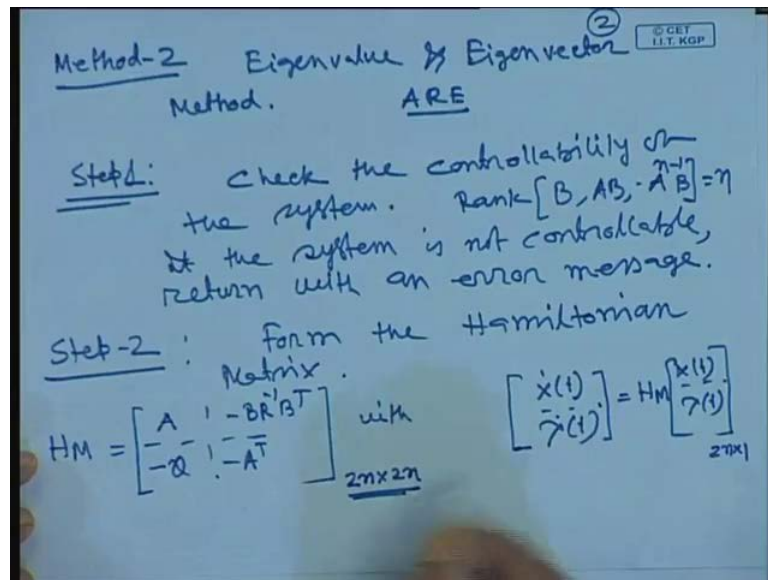 ②
© CET
I.I.T. KGP
Method-2 Eigenvalue & Eigenvector
Method. ARE
Step1: Check the controllability of
the system. Rank[B, AB, .. A^{n-1}B] = n
If the system is not controllable,
return with an error message.
Step-2: Form the Hamiltonian
Matrix.
HM = [A ¦ -BR^{-1}B^T; -Q ¦ -A^T]_{2n×2n} with [ẋ(t); λ̇(t)] = HM [x(t); λ(t)]_{2n×1}